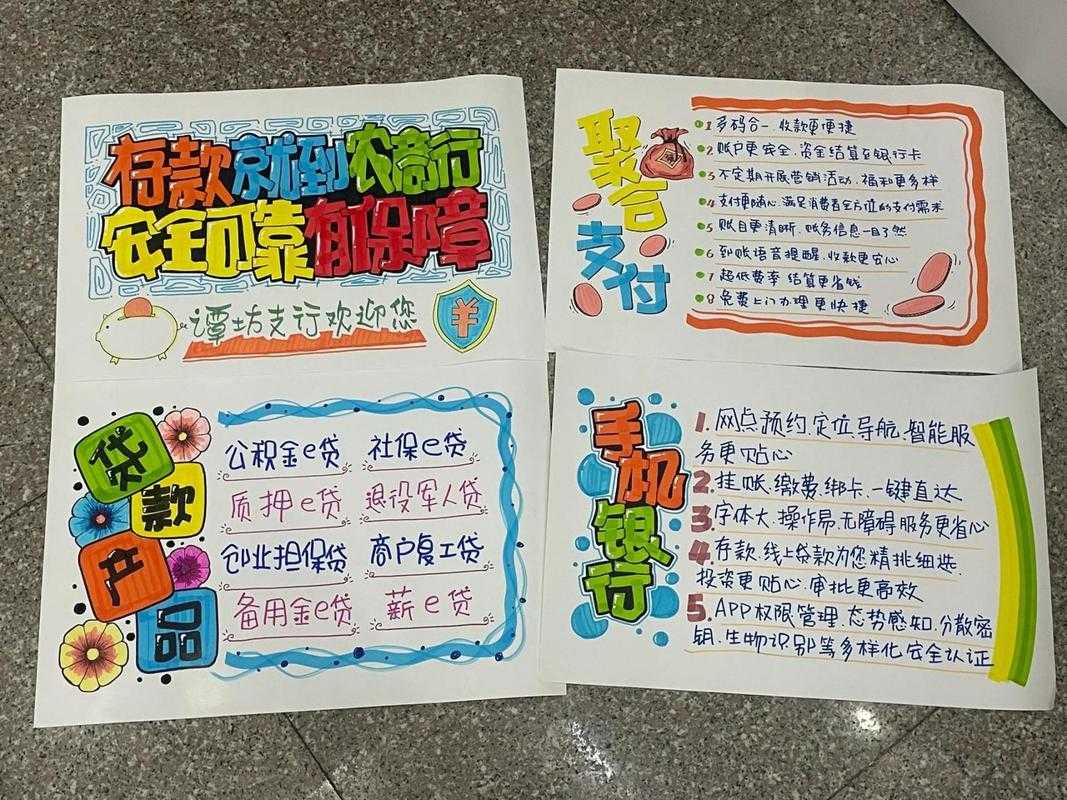 存款就到农商行
安全可靠有保障
谭坊支行欢迎您
聚合支付
1 多码合一.收款更便捷
2 账户更安全.资金结算至银行卡
3 不定期开展营销活动.福利更多样
4 支付更随心.满足消费者全方位的支付需求
5 账目更清晰.账务信息一目了然
6 到账语音提醒.收款更安心
7 超低费率 结算更省钱
8 免费上门办理更快捷
贷款产品
公积金e贷 社保e贷
质押e贷 退役军人贷
创业担保贷 商户复工贷
备用金e贷 薪e贷
手机银行
1. 网点预约.定位导航.智能服
务更贴心
2. 挂账.缴费.绑卡.一键直达
3. 字体大.操作易.无障碍服务更省心
4. 存款.线上贷款为您精挑细选.
投资更贴心.审批更高效
5. APP权限管理.态势感知.分散密
钥.生物识别等多样化安全认证